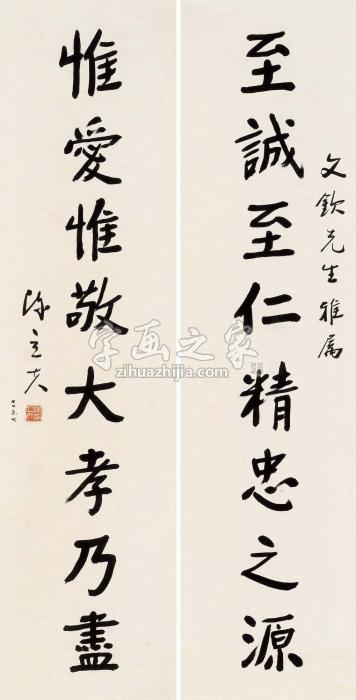 文欽先生雅屬
至誠至仁精忠之源
惟愛惟敬大孝乃盡
陳立夫
字画之家
zihuazhijia.com